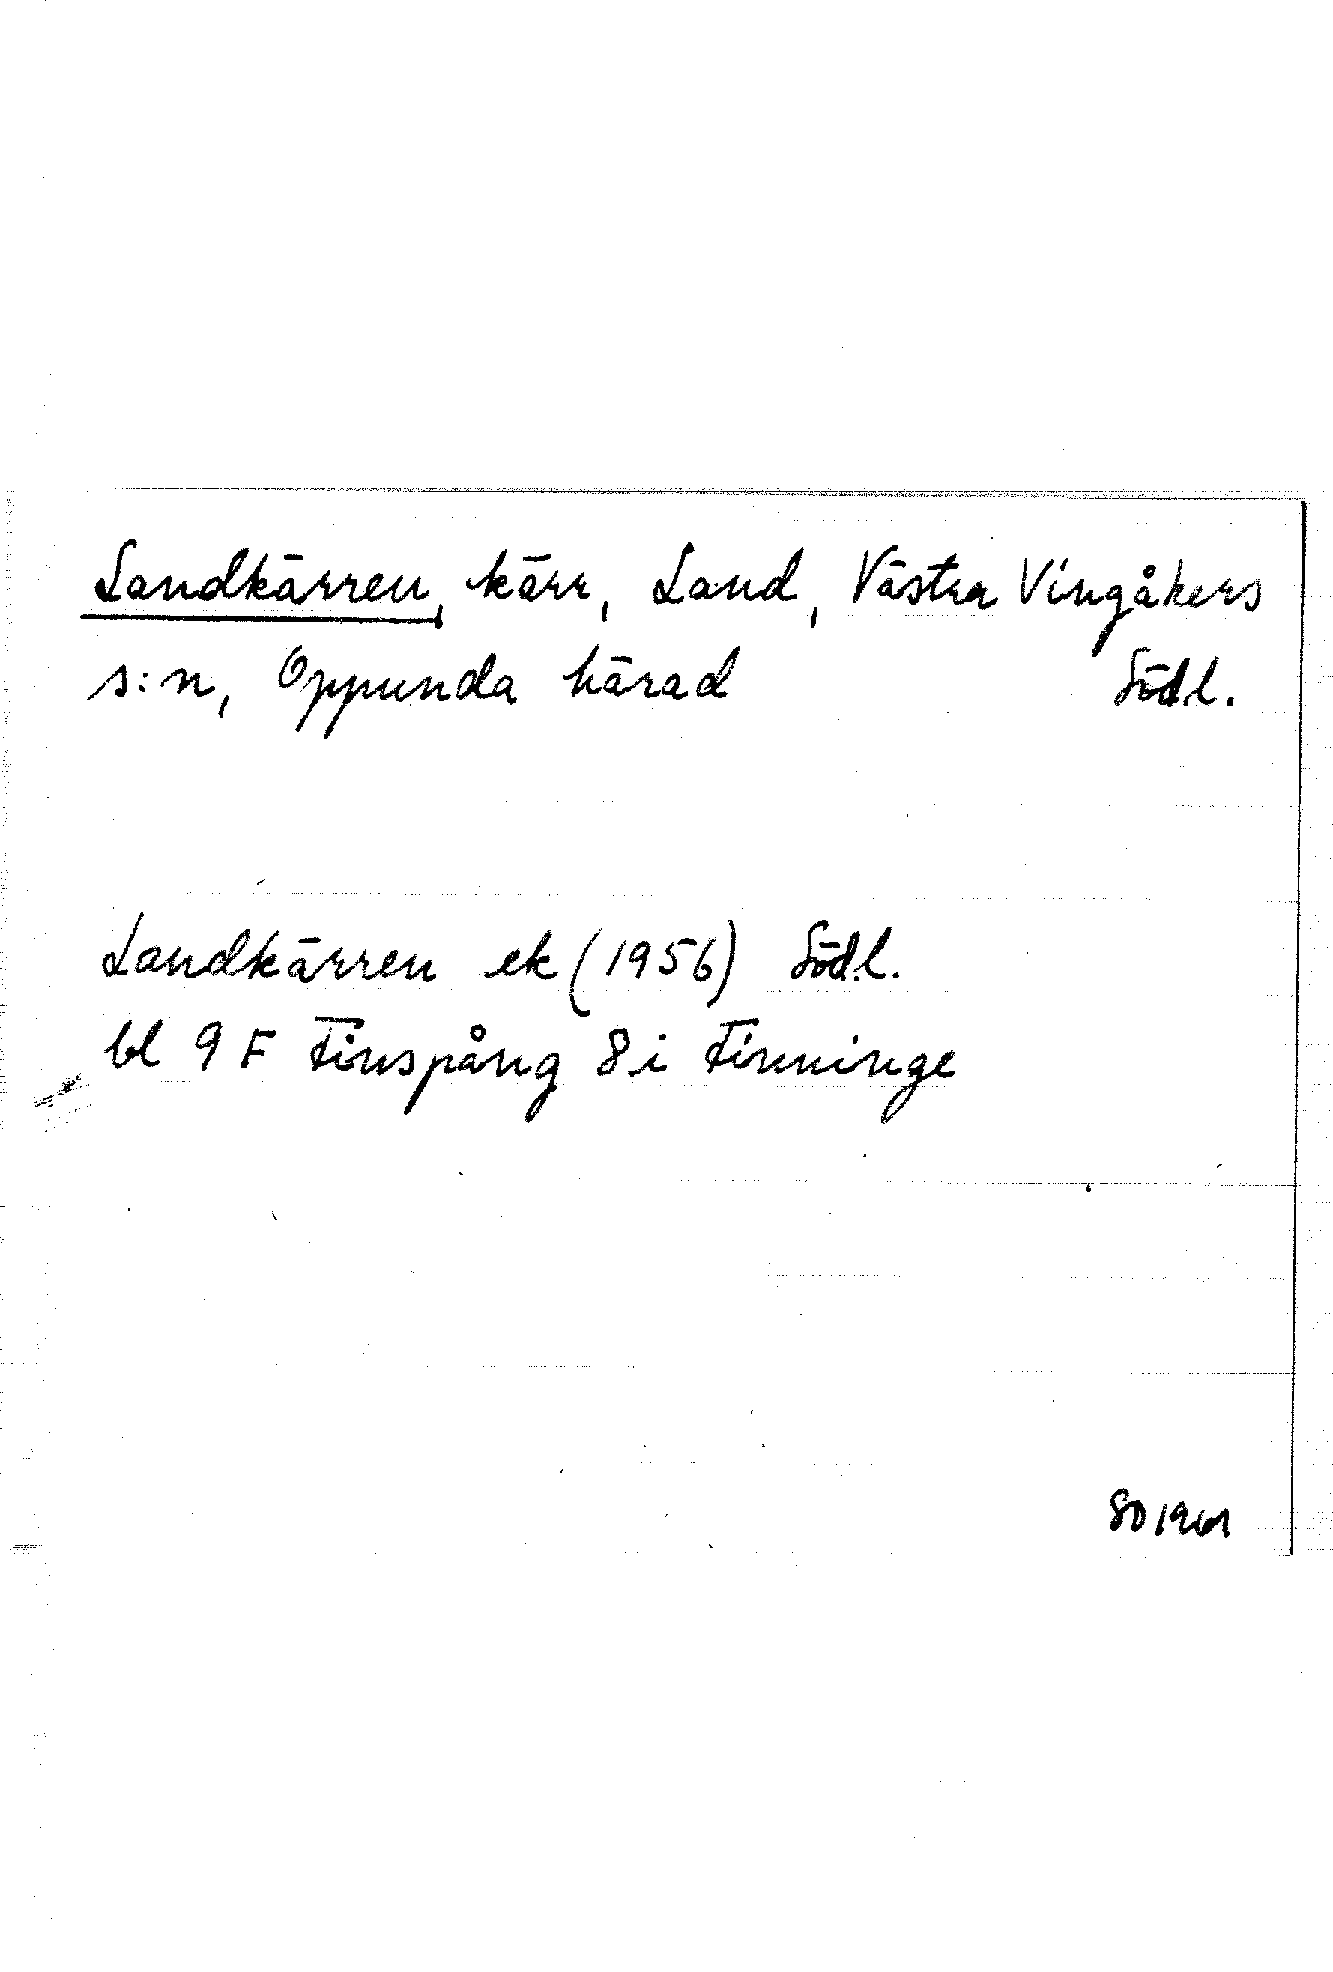 Landkärren, kärr, Land, Västra Vingåkers
s:n, Oppunda härad Södl.
Landkärren ek (1956) Södl.
bl 9 F Finspång 8 i Finninge